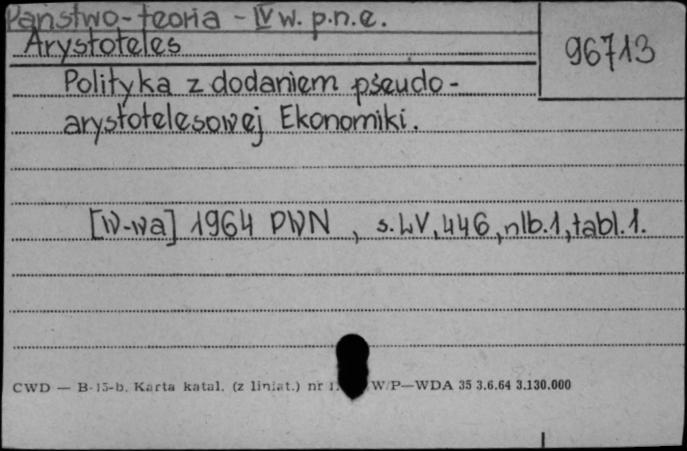 Państwo-teoria - IV w. p.n.e.
Arystoteles
96713
Polityka z dodaniem pseudo-
arystotelesowej Ekonomiki.
[W-wa] 1964 PWN , s. LV, 446, nlb. 1, tabl. 1.
CWD — B-15-b. Karta katal. (z liniat.) nr W P—WDA 35 3.6.64 3.130.000